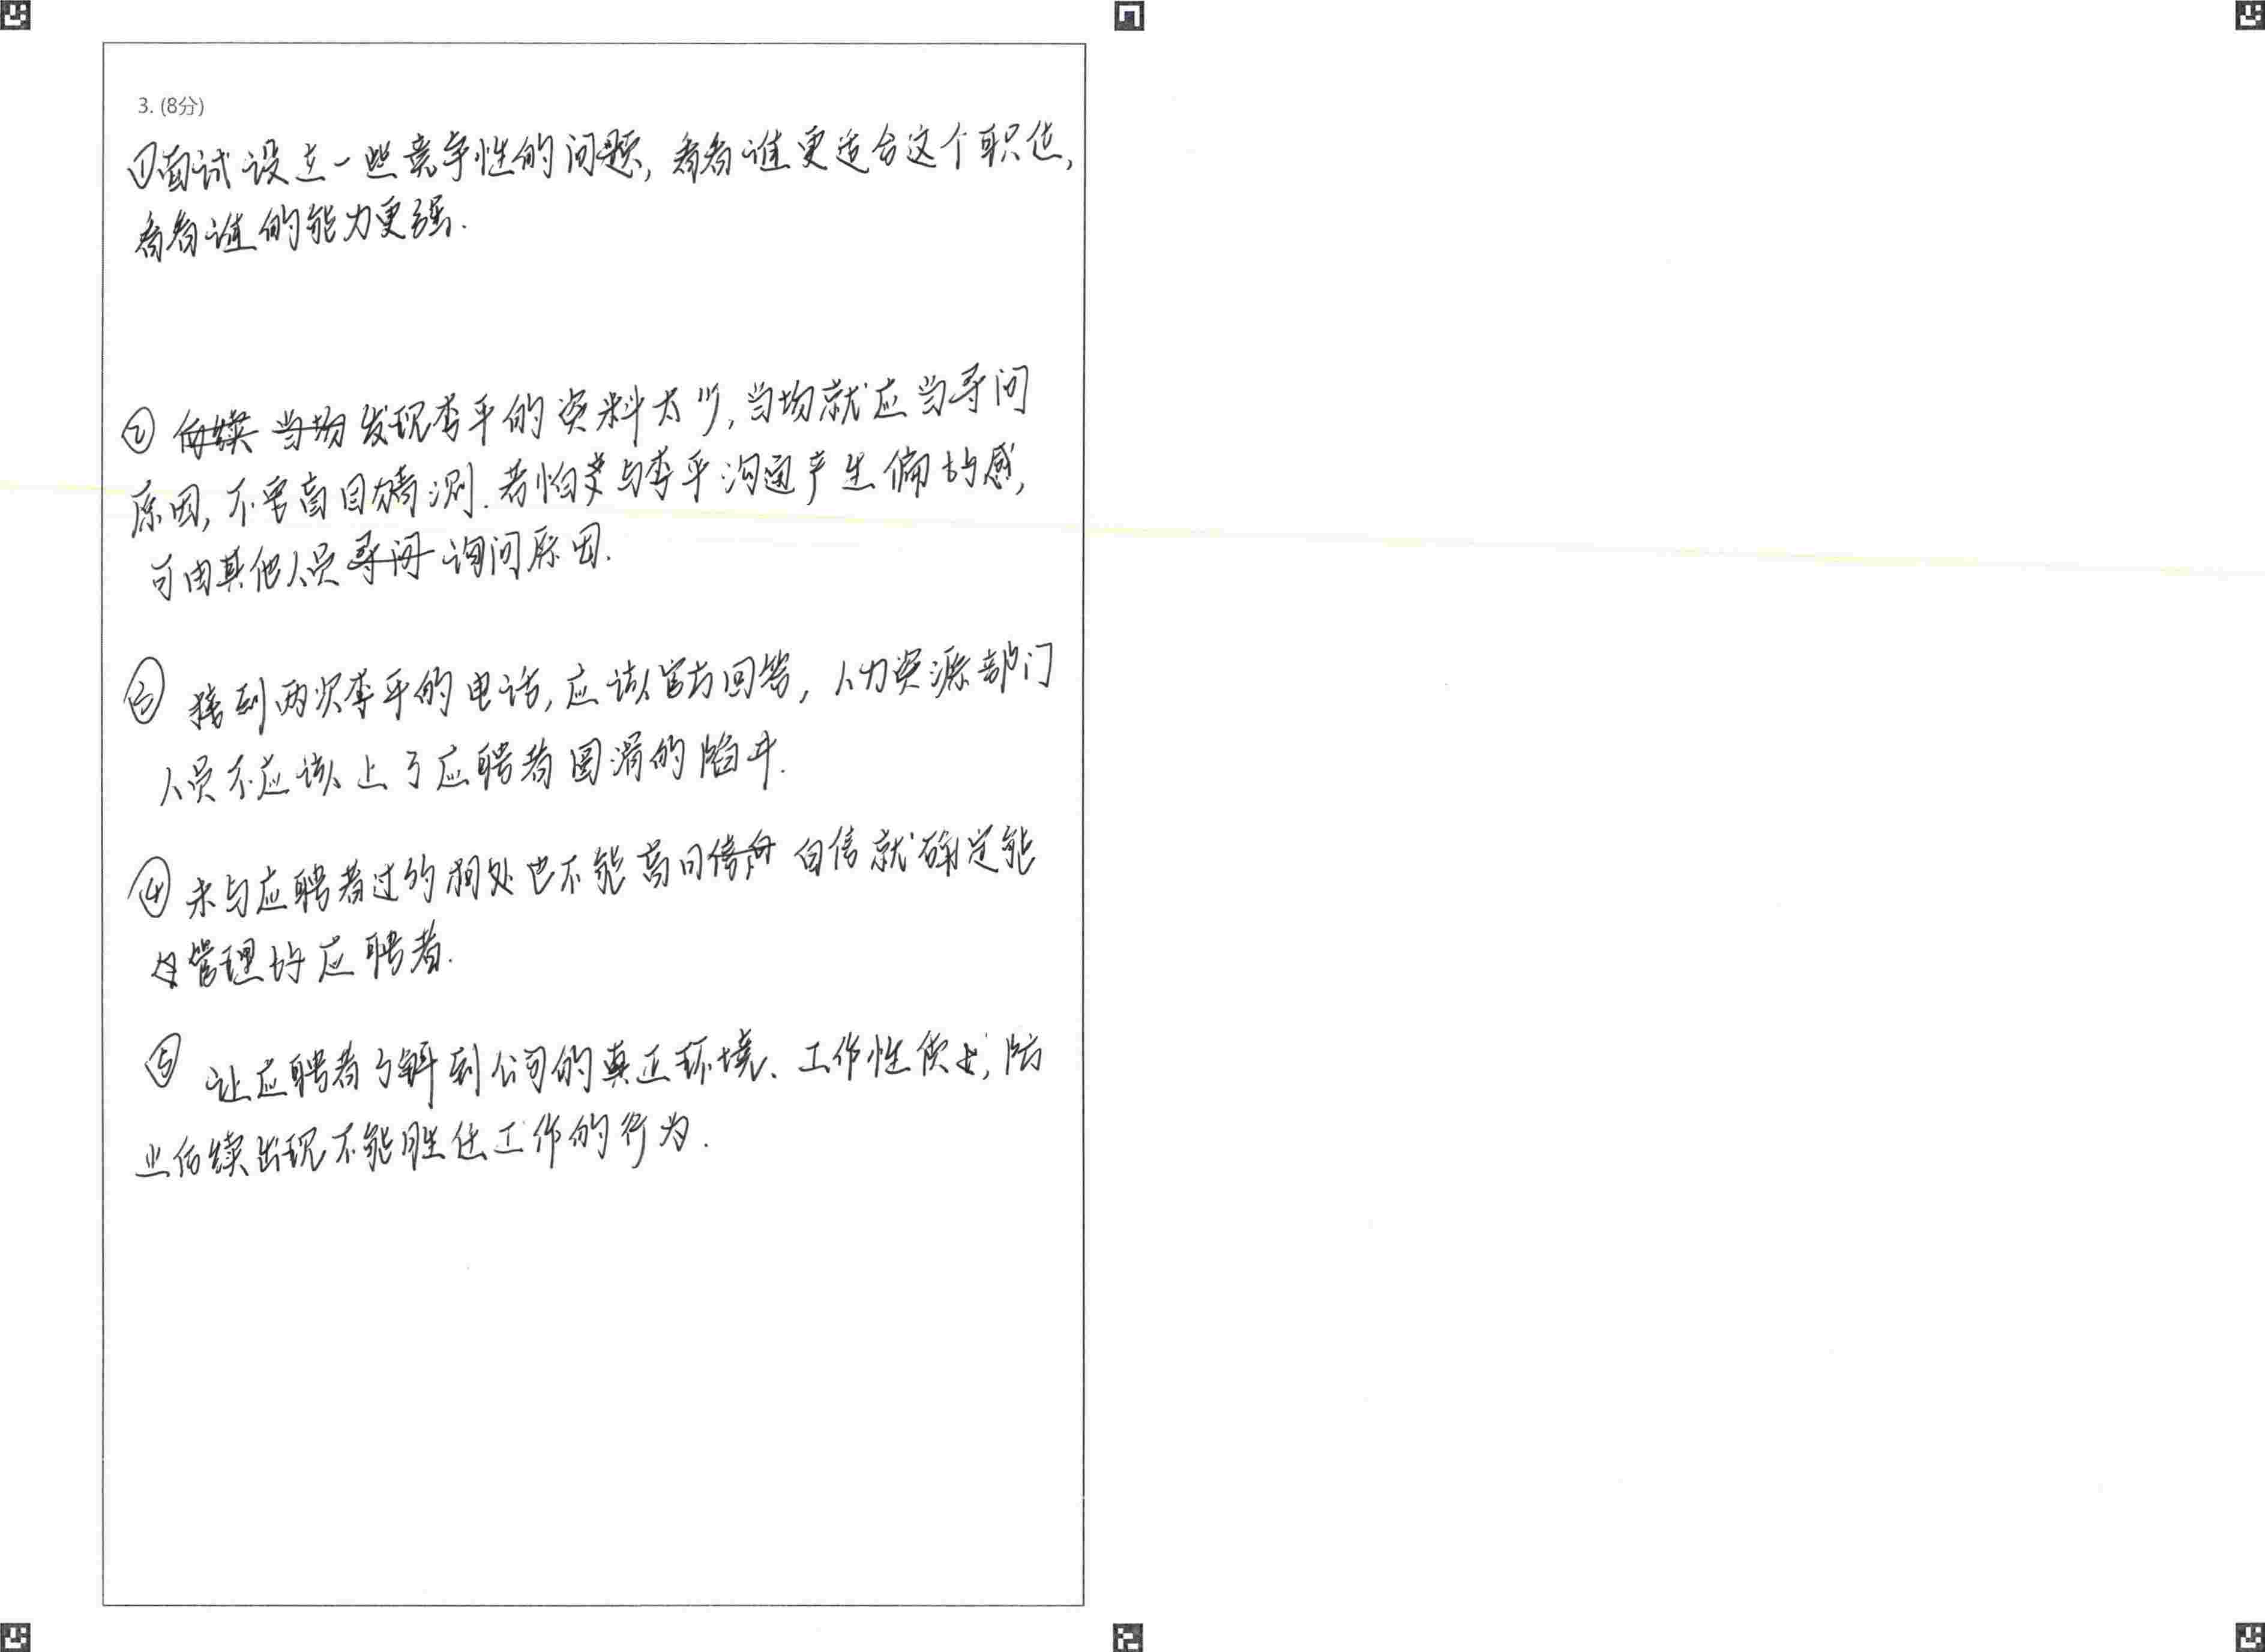 3. (8分)
①面试设立一些竞争性的问题,看看谁更适合这个职位,
看看谁的能力更强.
② 当场 发现李平的资料太少,当场就应当寻问
原因,不要盲目猜测.若怕与李平沟通产生偏好感,
可由其他人员 寻问 询问原因.
③ 接到两次李平的电话,应该官方回答,人力资源部门
人员不应该上了应聘者圆滑的陷井.
④ 未与应聘者过的相处也不能盲目 自信就确定能
管理好应聘者.
⑤ 让应聘者了解到公司的真正环境、工作性质,防
止后续出现不能胜任工作的行为.